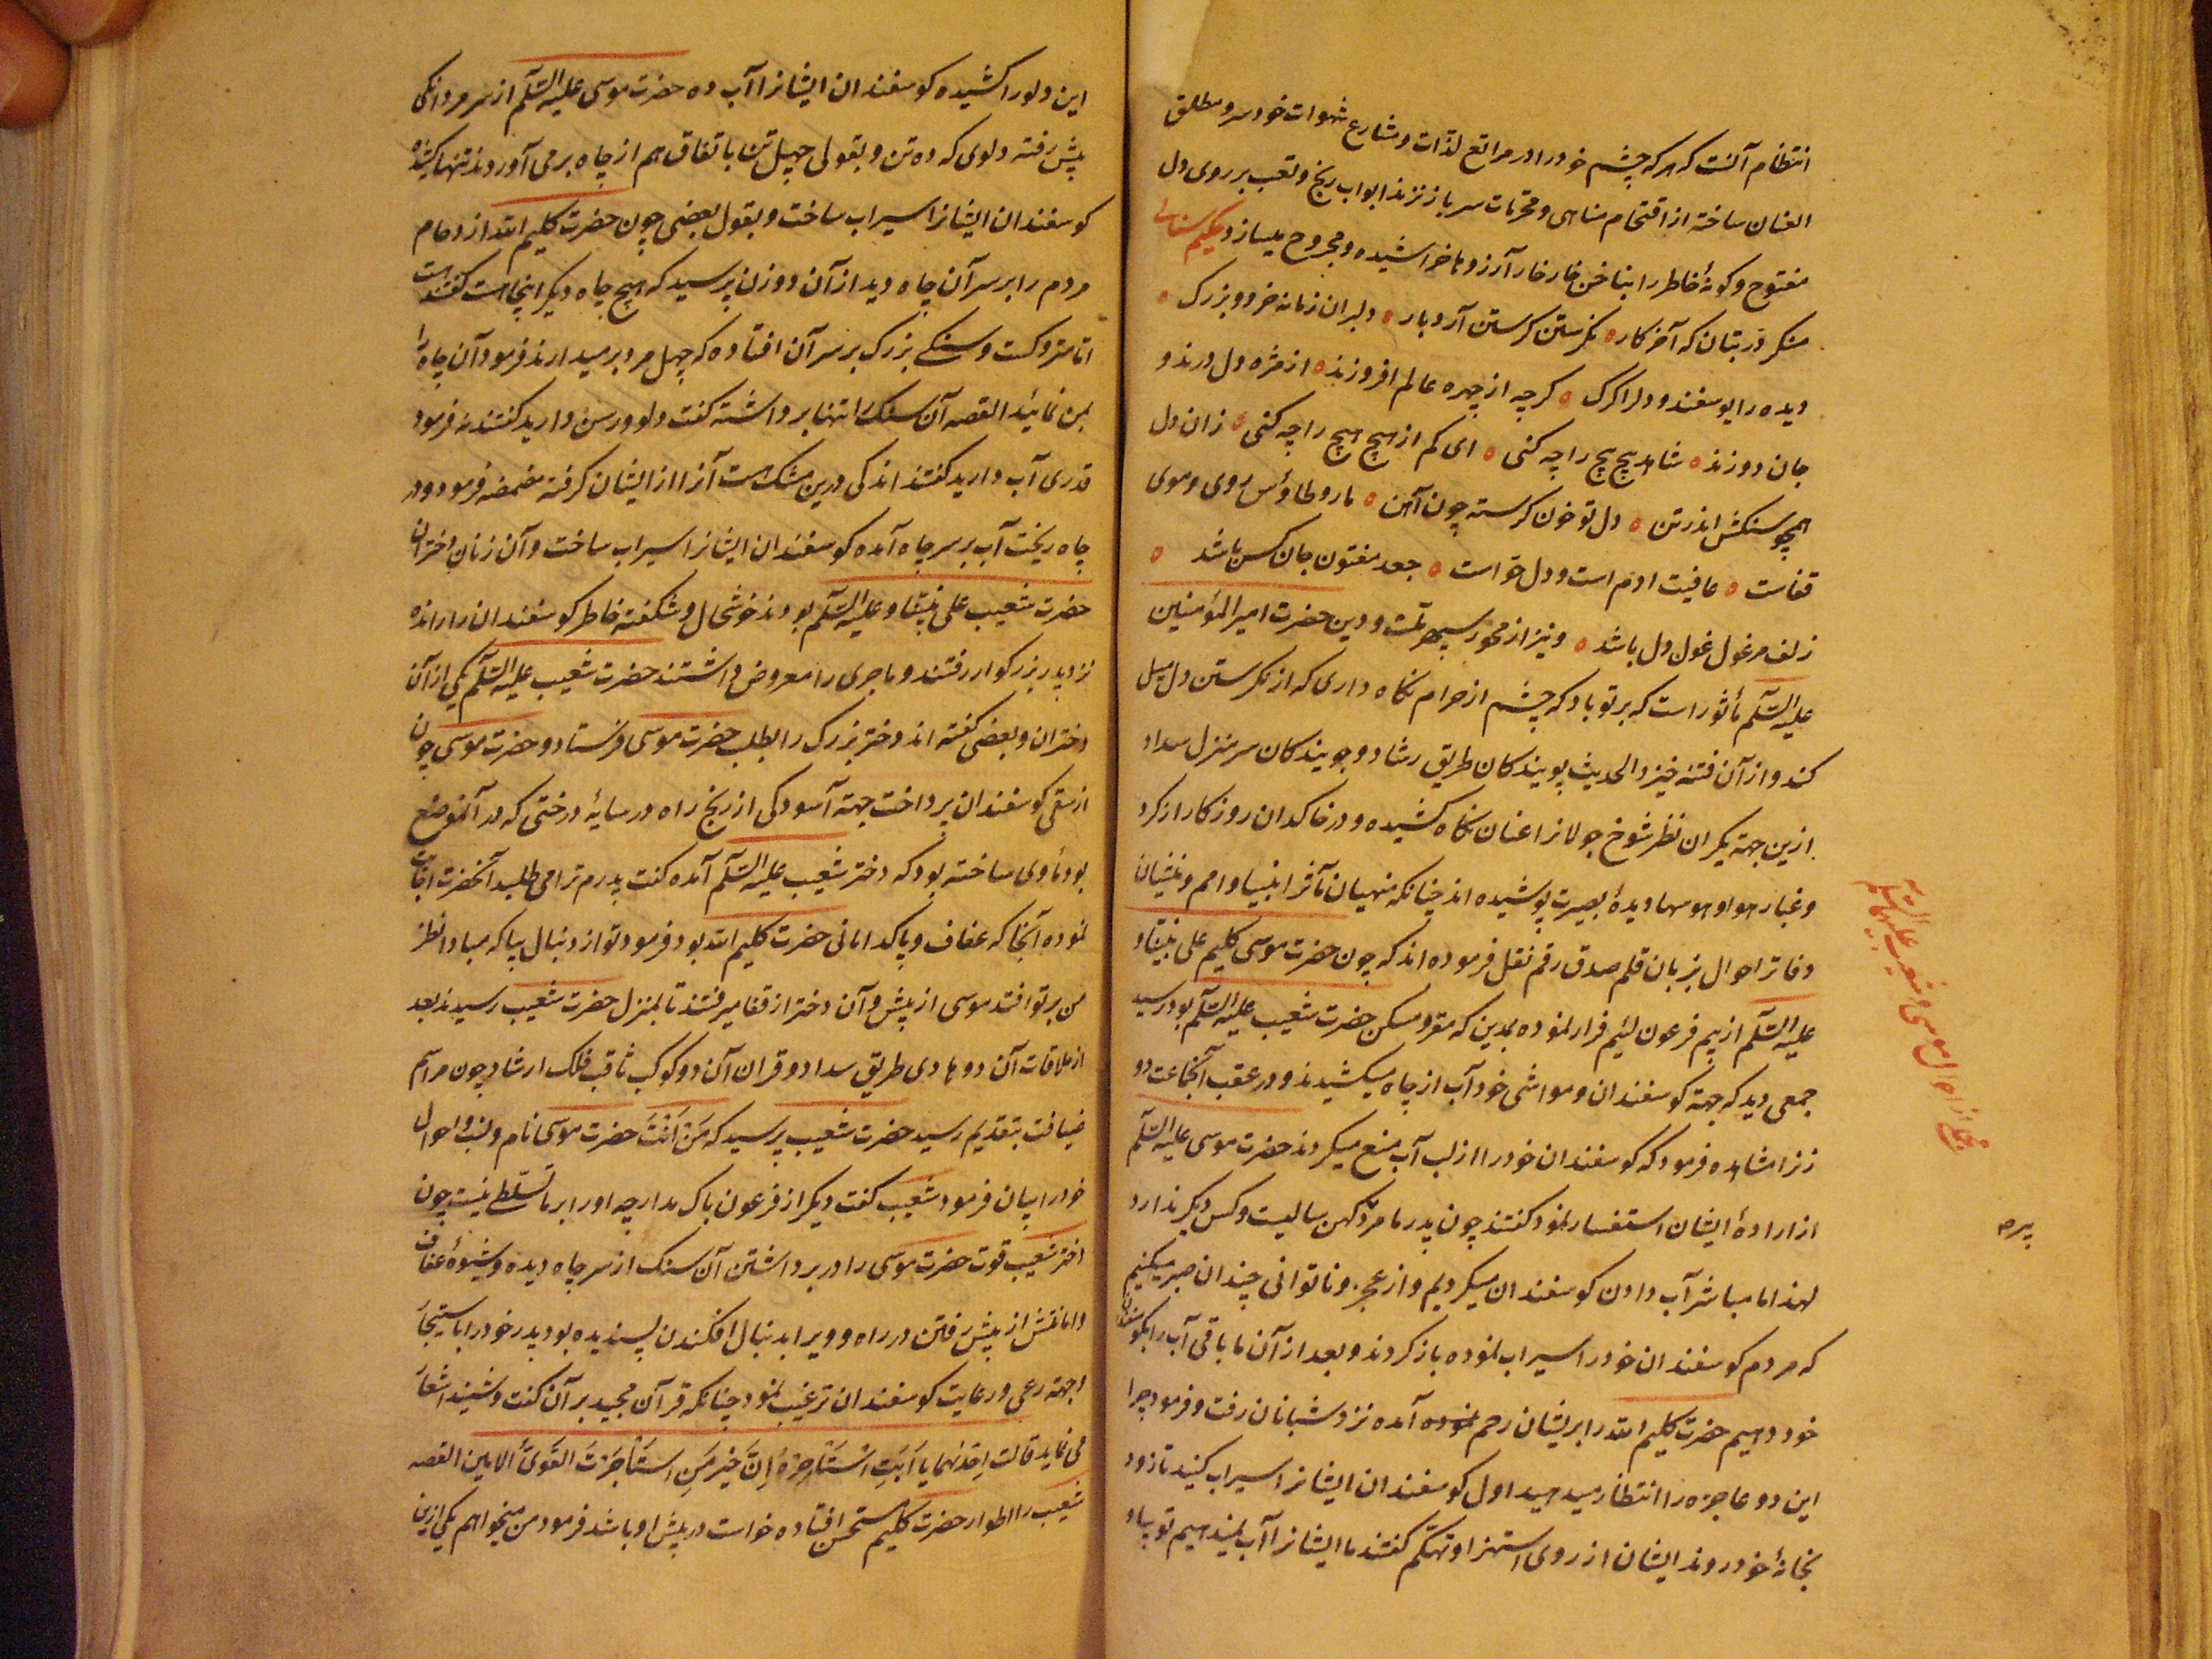 انتظام آنست که هر که چشم خود را در مراتع لذّات و مشارع شهوات خودسر و مطلق
العنان ساخته از اقتحام مناهی و محرّمات سر باز نزند ابواب رنج و تعب بر روی دل
مفتوح و کونهٔ خاطر را بناخن خارخار آرزوها خراشیده و مجروح میسازد حکیم سنائی
منکر در بتان که آخر کار ه نکرستن کرستن آرد بار ه دلبران زمانه خرد و بزرک ه
دیده را یوسفند و دل را کرک ه کرچه از چهره عالم افروزند ه از مژه دل درند و
جان دوزند ه شاهد پیچ پیچ را چه کنی ه ای کم از هیچ هیچ را چه کنی ه زان دل
همچو سنکش اندر تن ه دل تو خون کرسته چون آهن ه مار و طاؤس روی و موی
قفاست ه عافیت ادم است و دل حواست ه جعد مفتون جان کسن باشد ه
زلف مرغول غول دل باشد ه و نیز از محور سپهر ملت و دین حضرت امیر المؤمنین
علیه السّلام مأثور است که بر تو باد که چشم از حرام نکاه داری که از نکرستن دل میل
کند و از آن فتنه خیزد الحدیث پویندکان طریق رشاد و جویندکان سرمنزل سداد
ازین جهة یکران نظر شوخ جولانرا عنان نکاه کشیده و در خاکدان روزکار از کرد
و غبار هوا و هوسها دیدهٔ بصیرت پوشیده اند چنانکه منهیان مآثر انبیا و امم و منشیان
دفاتر احوال بزبان قلم صدق رقم نقل فرموده اند که چون حضرت موسی کلیم علی نبیّنا و
علیه السّلام از بیم فرعون لئیم فرار نموده بمدین که مقر و مسکن حضرت شعیب علیه السّلام بود رسید
جمعی دید که جهة کوسفندان و مواشی خود آب از چاه میکشیدند و در عقب آنجماعت دو
زنرا مشاهده فرمود که کوسفندان خود را از لب آب منع میکردند حضرت موسی علیه السّلام
از ارادهٔ ایشان استفسار نمود کفتند چون پدر ما مرد کهن سالیست و کس دیکر ندارد
لهذا ما مباشر آب دادن کوسفندان میکردیم و از عجز و ناتوانی چندان صبر میکنیم
که مردم کوسفندان خود را سیراب نموده باز کردند و بعد از آن ما باقی آب را بکوسفندان
خود دهیم حضرت کلیم الله را بر ایشان رحم نموده آمده نزد شبانان رفت و فرمود چرا
این دو عاجزه را انتظار میدهید اول کوسفندان ایشانرا سیراب کنید تا زود
بخانهٔ خود روند ایشان از روی استهزا و تهکّم کفتند ما ایشانرا آب نمیدهیم تو بیا و
این دلو را کشیده کوسفندان ایشانرا آب ده حضرت موسی علیه السّلام از سر مردانکی
پیش رفته دلوی که ده تن و بقولی چهل تن باتفاق هم از چاه بر می آوردند تنها کشیده
کوسفندان ایشانرا سیراب ساخت و بقول بعضی چون حضرت کلیم الله ازدحام
مردم را بر سر آن چاه دید از آن دو زن پرسید که هیچ چاه دیکر اینجا هست کفتند هست
امّا متروکست و سنکی بزرک بر سر آن افتاده که چهل مرد بر میدارند فرمود آن چاه را
بمن نمائید القصه آن سنک را تنها برداشته کفت دلو و رسن دارید کفتند نه فرمود
قدری آب دارید کفتند اندکی درین مشک هست آنرا از ایشان کرفته مضمضه فرمود و در
چاه ریخت آب بر سر چاه آمده کوسفندان ایشانرا سیراب ساخت و آن زنان دختران
حضرت شعیب علی نبیّنا و علیه السّلام بودند خوشحال و شکفته خاطر کوسفندان را رانده
نزد پدر بزرکوار رفتند و ماجری را معروض داشتند حضرت شعیب علیه السّلام یکی از آن
دختران و بعضی کفته اند دختر بزرک را بطلب حضرت موسی فرستاد و حضرت موسی چون
از سقی کوسفندان پرداخت جهة آسودکی از رنج راه در سایهٔ درختی که در آنموضع
بود مأوی ساخته بود که دختر شعیب علیه السّلام آمده کفت پدرم ترا می طلبد آنحضرت اجابت
نموده آنجا که عفاف و پاکدامانی حضرت کلیم الله بود فرمود تو از دنبال بیا که مبادا نظر
من بر تو افتد موسی از پیش و آن دختر از قفا میرفتند تا بمنزل حضرت شعیب رسیدند بعد
از ملاقات آن دو هادی طریق سداد و قران آن دو کوکب ثاقب فلک ارشاد چون مراسم
ضیافت بتقدیم رسید حضرت شعیب پرسید که مَن اَنتَ حضرت موسی نام و نسب و احوال
خود را بیان فرمود شعیب کفت دیکر از فرعون باک مدار چه او را بر ما تسلّطی نیست چون
دختر شعیب قوت حضرت موسی را در برداشتن آن سنک از سر چاه دیده و شیوهٔ عفاف
و امانتش از پیش رفتن در راه و ویرا بدنبال افکندن پسندیده بود پدر خود را باستیجار
او جهة رعی و رعایت کوسفندان ترغیب نمود چنانکه قرآن مجید بر آن کفت و شنید اشعار
می نماید قالت اِحدٰیهُما یا اَبَتِ اسْتَأجِرْهُ اِنَّ خَیْرَ مَنِ اسْتَأجَرْتَ القَوِیُّ الامین القصه
شعیب را اطوار حضرت کلیم مستحسن افتاده خواست در پیش او باشد فرمود من میخواهم یکی ازین